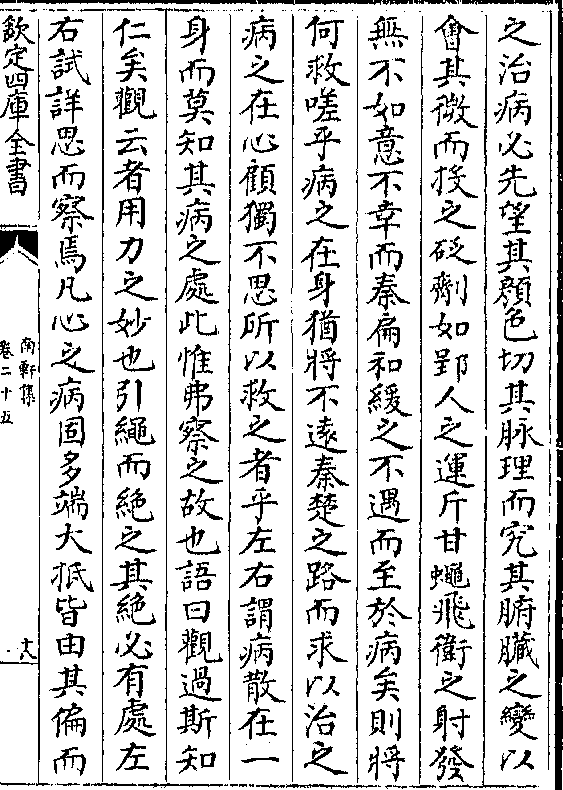 之治病必先望其顔色切其脉理而究其腑臟之變以
㑹其微而投之砭劑如郢人之運斤甘蠅飛衛之射發
無不如意不幸而秦扁和緩之不遇而至於病矣則將
何救嗟乎病之在身猶將不逺秦楚之路而求以治之
病之在心顧獨不思所以救之者乎左右謂病散在一
身而莫知其病之處此惟弗察之故也語曰觀過斯知
仁矣觀云者用力之妙也引繩而絶之其絶必有處左
右試詳思而察焉凡心之病固多端大抵皆由其偏而
欽定四庫全書
南軒集
卷二十五
十八